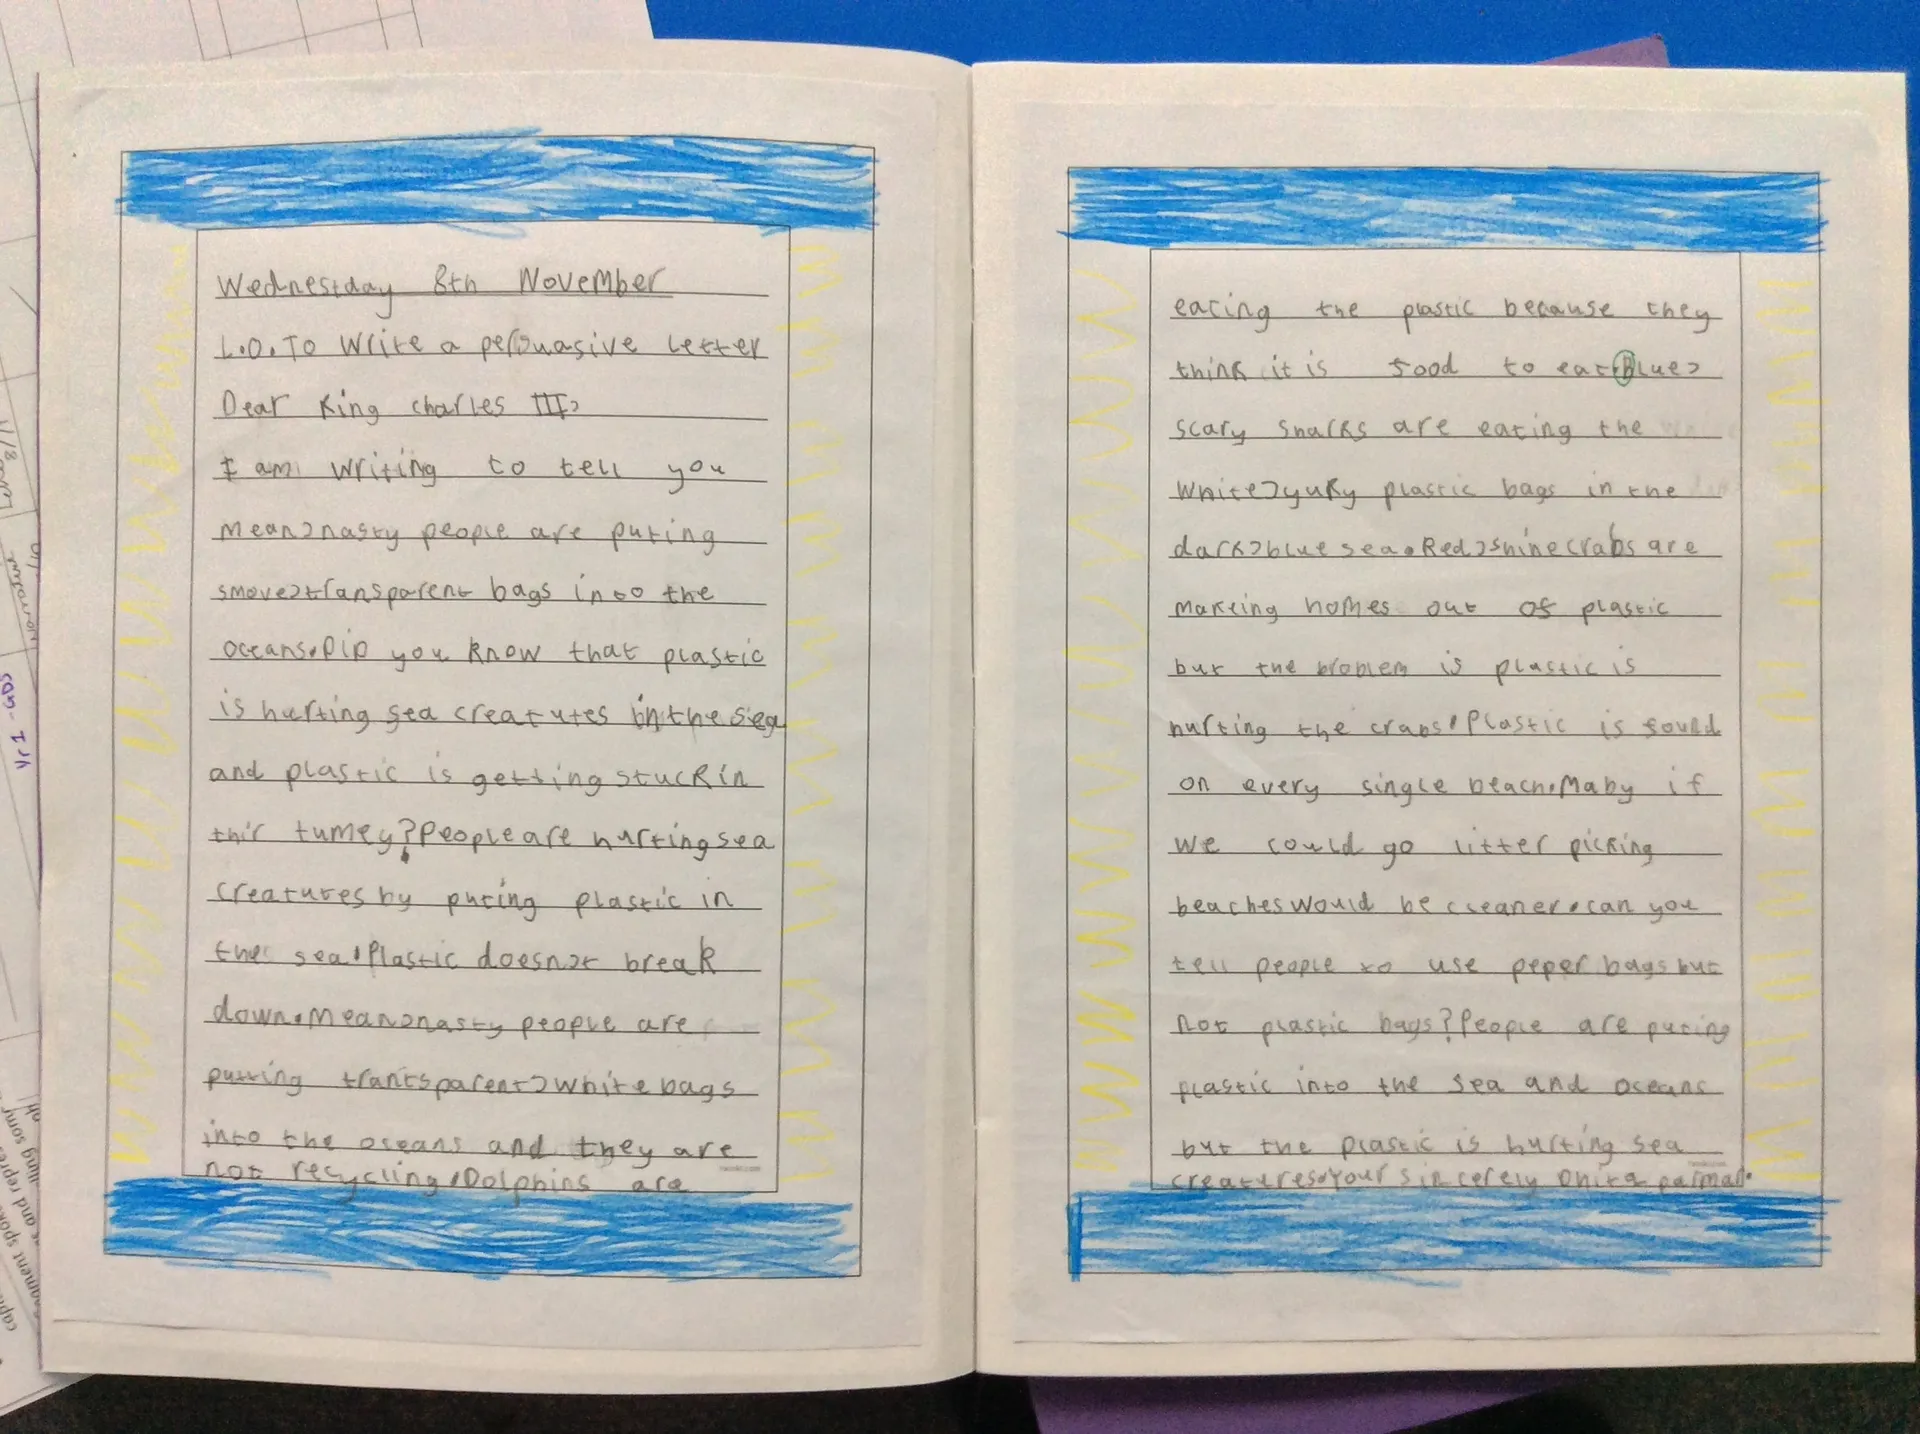 Wednesday 8th November
L.O. To write a persuasive letter
Dear King charles III,
I am writing to tell you
mean,nasty people are puting
smove,transparent bags into the
oceans.Did you know that plastic
is hurting sea creatures in the sea
and plastic is getting stuck in
thir tumey?People are hurting sea
creatures by puting plastic in
the sea.Plastic doesnot break
down.Mean,nasty people are
putting trantsparent,white bags
into the oseans and they are
not recycling.Dolphins are
eating the plastic because they
think it is food to eat.Blue,
scary sharks are eating the
white,yuky plastic bags in the
dark,blue sea.Red,shine crabs are
makeing homes out of plastic
but the broblem is plastic is
hurting the crabs.Plastic is found
on every single beach.Maby if
we could go litter picking
beaches would be cleaner.can you
tell people to use peper bags but
not plastic bags?People are puting
plastic into the sea and oseans
but the plastic is hurting sea
creatures.Your sincerely
Yr1 - GDS